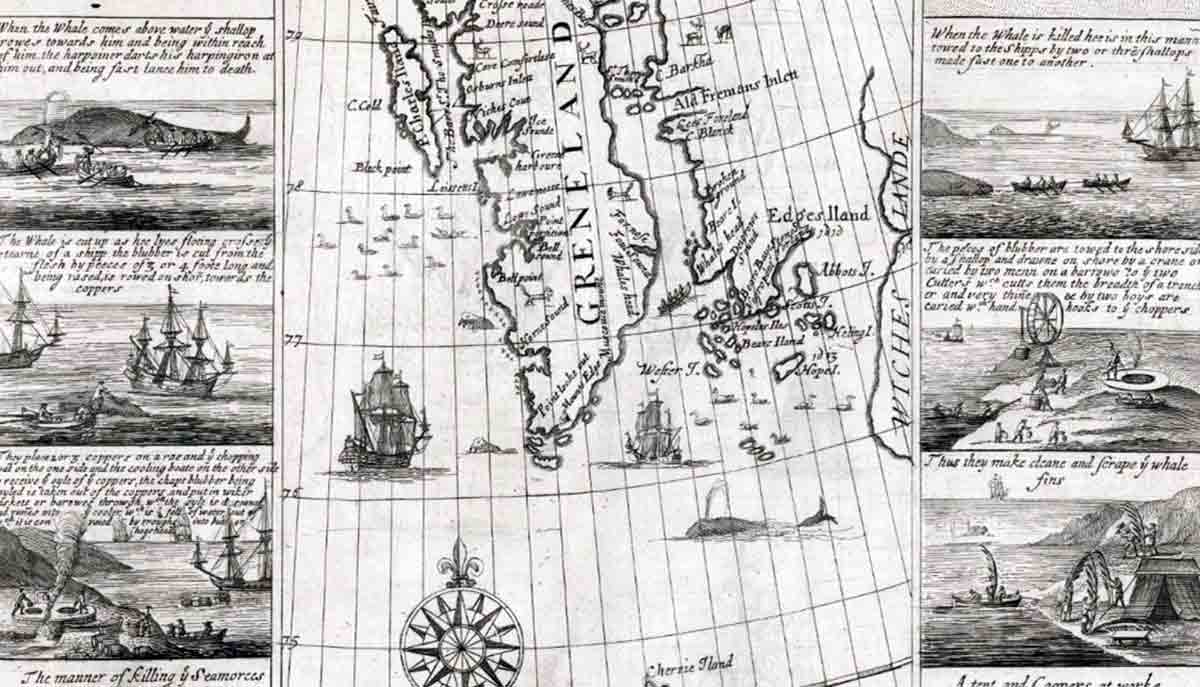 When the Whale comes above water ẙ shallop
rowes towards him and being within reach
of him the harpoiner darts his harpingiron at
him out, and being fast lance him to death
The Whale is cut up as hee lyes floting
of a shipp the blubber is cut from the
flesh by peeces of 3 or 4 foote long and
being rased is rowed on shor, towards the
coppers
They place 2 or 3 coppers on a roe and ẙ chopping
on the one side and the cooling boate on the other side
receive ẙ oyle of ẙ coppers, the chopt blubber being
boyled is taken out of the coppers and put in wiker
baskets or barrowes through wᶜʰ the oyle is
into cooler wᶜʰ is full of water out of
by troughs into
hogsheads
The manner of killing ẙ Seamorces
79
78
77
76
75
Crosse roade
Deere sound
Cove Comfortlesse
Osburns Inlett
C. Cold
P. Charles Iland
Black point
Ice
Sounde
Green
harbour
Lowe
Sound
Bell
Sound
Bell point
Horne Sound
Point lookout
GRENELAND
C. Barkha
Ald Fremans Inlett
C. Blanck
Broken
ground
Barr I.
Whales head
Foxe nose
Whales head
Edges Iland
1616
Abbots I.
Scotts I.
Heling I.
Beare Iland
1613
Hopes I.
Wester I.
WICHES LANDE
Cherrie Iland
When the Whale is killed hee is in this mann
towed to the Shipps by two or three shallops
made fast one to another.
The peeces of blubber are towed to the shore side
by a shallop and drawne on shore by a crane or
caried by two menn on a barrowe to ẙ two
Cutters wᶜʰ cutts them the breadth of a trench
er and very thine be by two boys are
caried wᵗʰ hand hooks to ẙ choppers
Thus they make cleane and scrape ẙ whale
fins
A tent and Coopers at worke